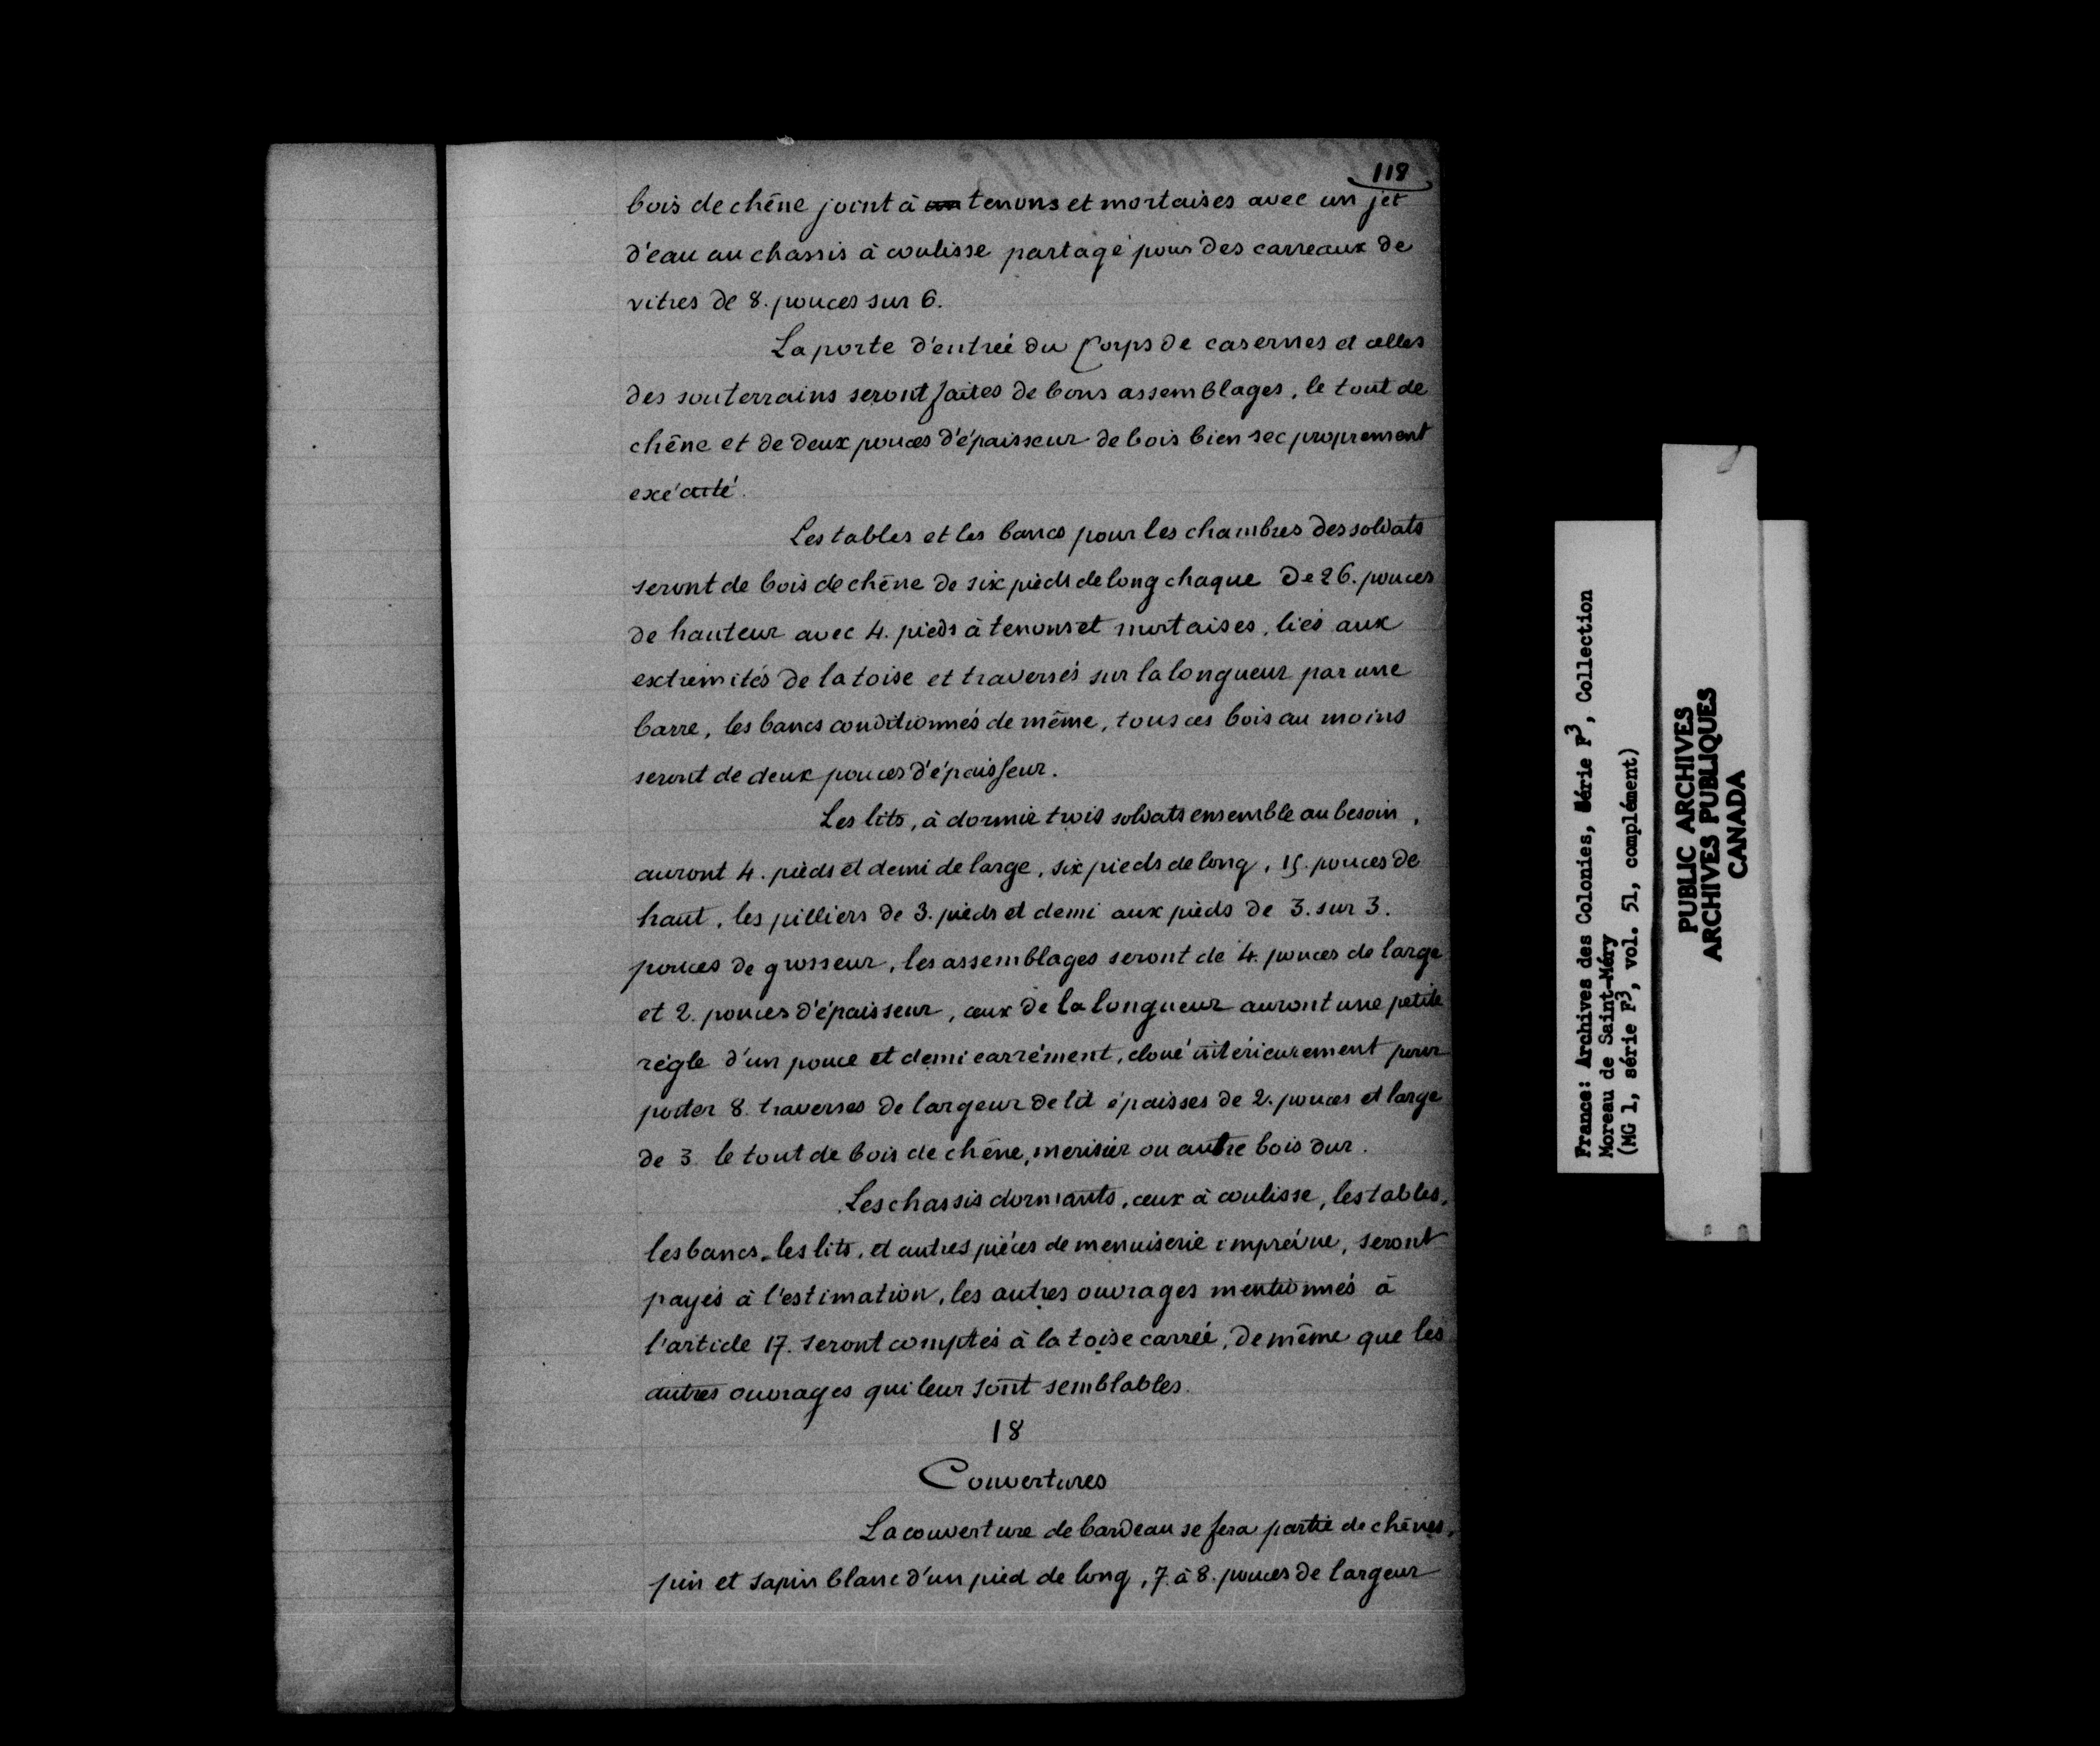 118
bois de chêne joint à tenons et mortaises avec un jet
d'eau au chassis à coulisse partagé pour des carreaux de
vitres de 8. pouces sur 6.
La porte d'entrée du Corps de casernes et celles
des souterrains seront faites de bons assemblages, le tout de
chêne et de deux pouces d'épaisseur de bois bien sec proprement
exécuté.
Les tables et les bancs pour les chambres des soldats
seront de bois de chêne de six pieds de long chaque de 26. pouces
de hauteur avec 4. pieds à tenons et mortaises, liés aux
extrémités de la toise et traversés sur la longueur par une
barre, les bancs conditionnés de même, tous ces bois au moins
seront de deux pouces d'épaisseur.
Les lits, à dormir trois soldats ensemble au besoin,
auront 4. pieds et demi de large, six pieds de long, 15. pouces de
haut, les pilliers de 3. pieds et demi aux pieds de 3. sur 3.
pouces de grosseur, les assemblages seront de 4. pouces de large
et 2. pouces d'épaisseur, ceux de la longueur auront une petite
régle d'un pouce et demi carrément, cloué intérieurement pour
porter 8. traverses de largeur de lit épaisses de 2. pouces et large
de 3. le tout de bois de chêne, merisier ou autre bois dur.
Les chassis dormants, ceux à coulisse, les tables,
les bancs, les lits, et autres piéces de menuiserie imprévue, seront
payés à l'estimation, les autres ouvrages mentionnés à
l'article 17. seront comptés à la toise carrée, de même que les
autres ouvrages qui leur sont semblables.
18
Couvertures
La couverture de bardeau se fera partie de chênes,
pin et sapin blanc d'un pied de long, 7. à 8. pouces de largeur
France: Archives des Colonies, Série F3, Collection
Moreau de Saint-Méry
(MG 1, série F3, vol. 51, complément)
PUBLIC ARCHIVES
ARCHIVES PUBLIQUES
CANADA